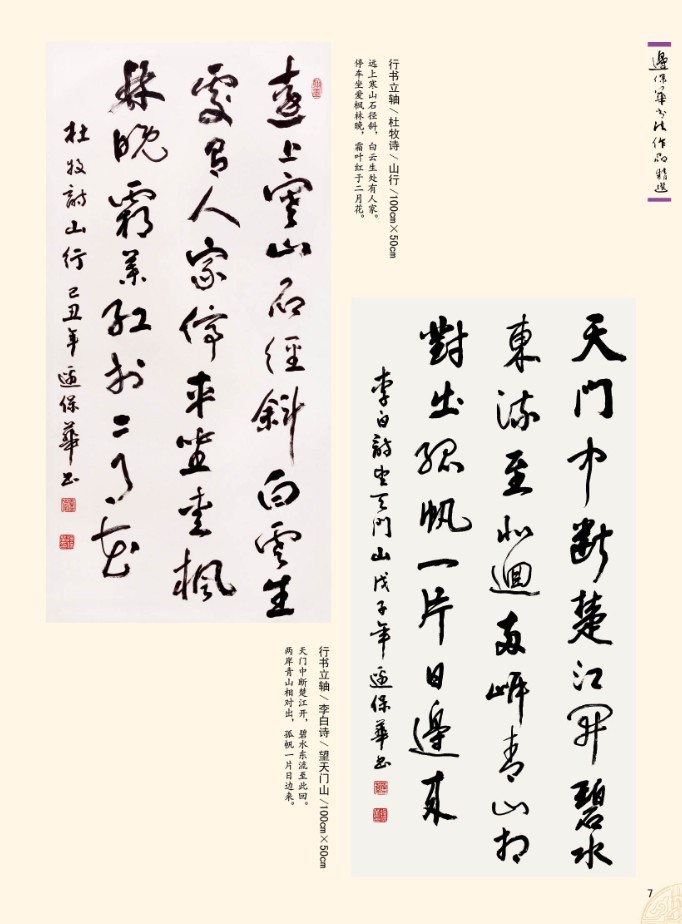 邊保華书法作品精選
遠上寒山石徑斜白雲生
處有人家停車坐愛楓
林晚霜葉紅於二月花
杜牧詩山行 己丑年 邊保華书
行书立轴 / 杜牧诗 / 山行 /100cm×50cm
远上寒山石径斜，白云生处有人家。
停车坐爱枫林晚，霜叶红于二月花。
天門中斷楚江開碧水
東流至此迴兩岸青山相
對出孤帆一片日邊來
李白詩望天門山 戊子年 邊保華书
行书立轴 / 李白诗 / 望天门山 /100cm×50cm
天门中断楚江开，碧水东流至此回。
两岸青山相对出，孤帆一片日边来。
7